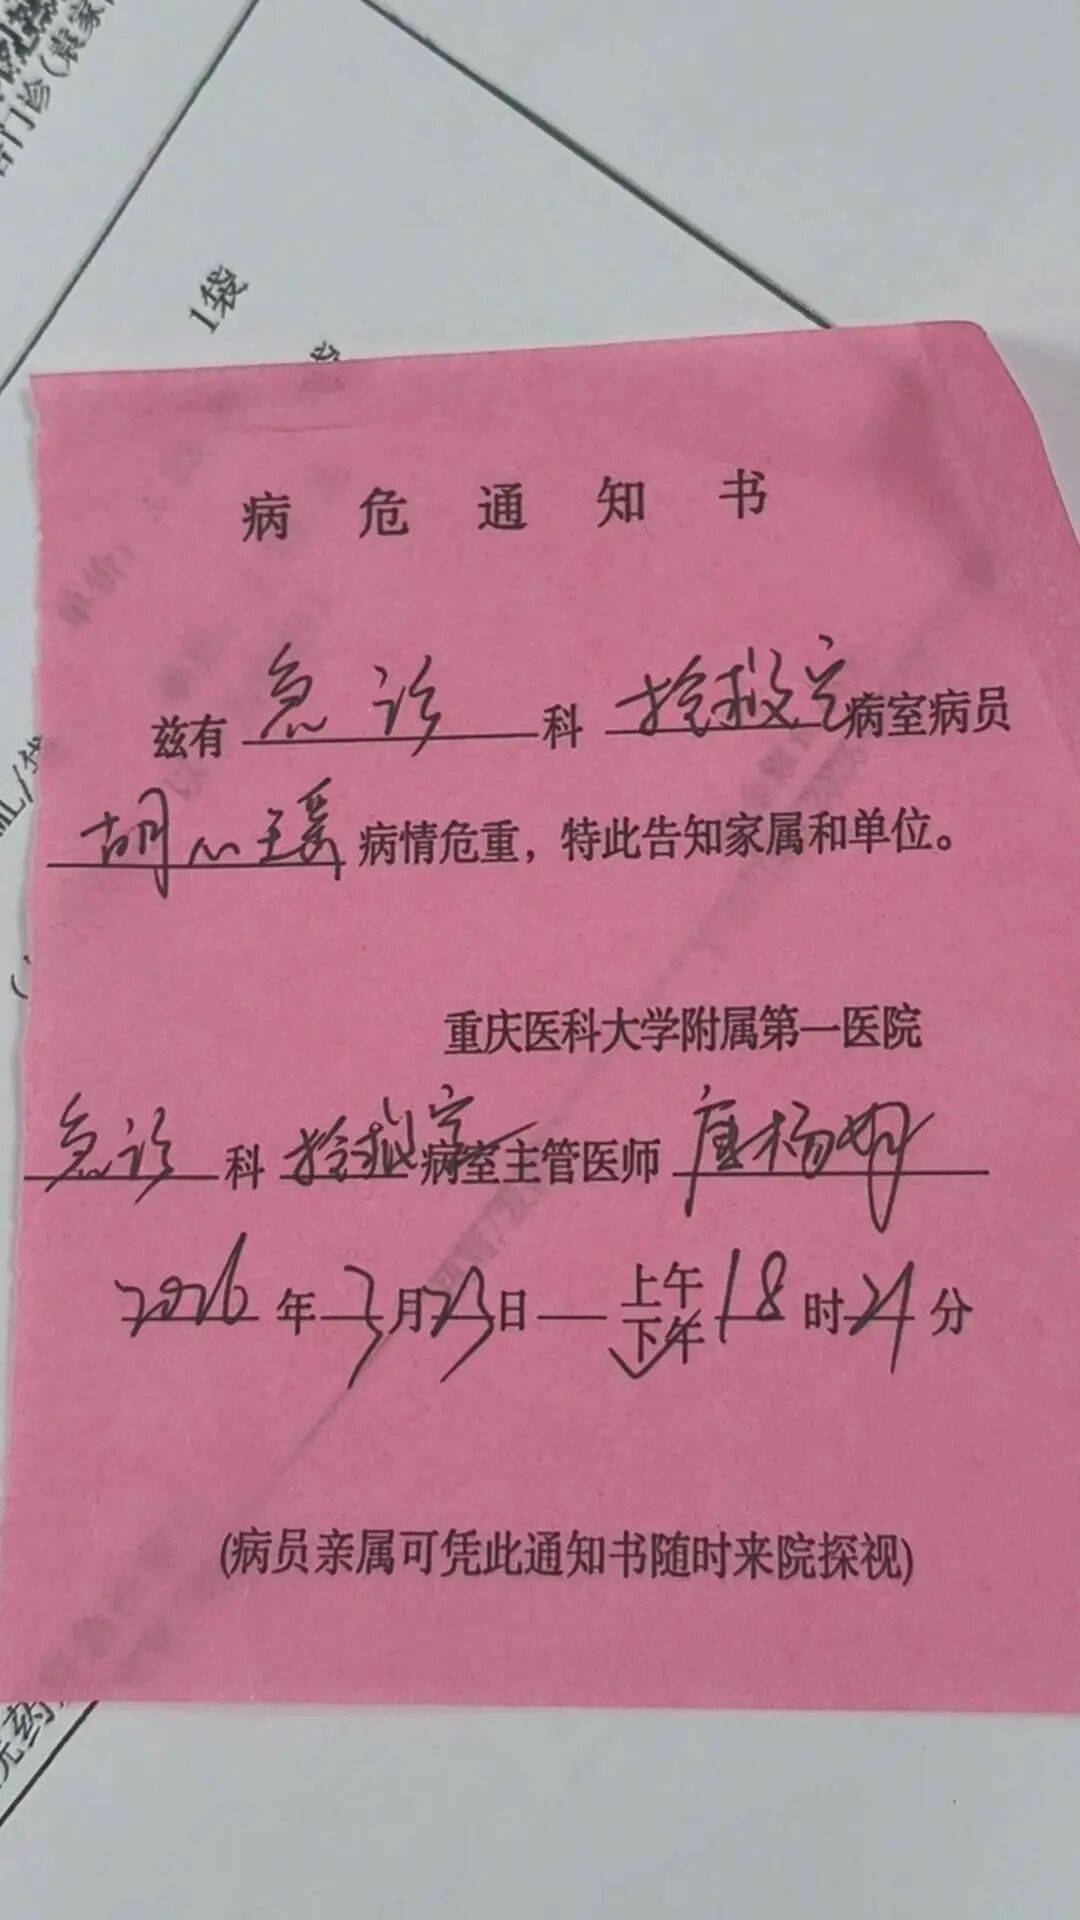 门诊(袁家
1袋
病危通知书
兹有 急诊 科 抢救室 病室病员
胡心瑶 病情危重，特此告知家属和单位。
重庆医科大学附属第一医院
急诊 科 抢救室 病室主管医师
2026 年 3 月 23 日 上午 下午 18 时 21 分
(病员亲属可凭此通知书随时来院探视)